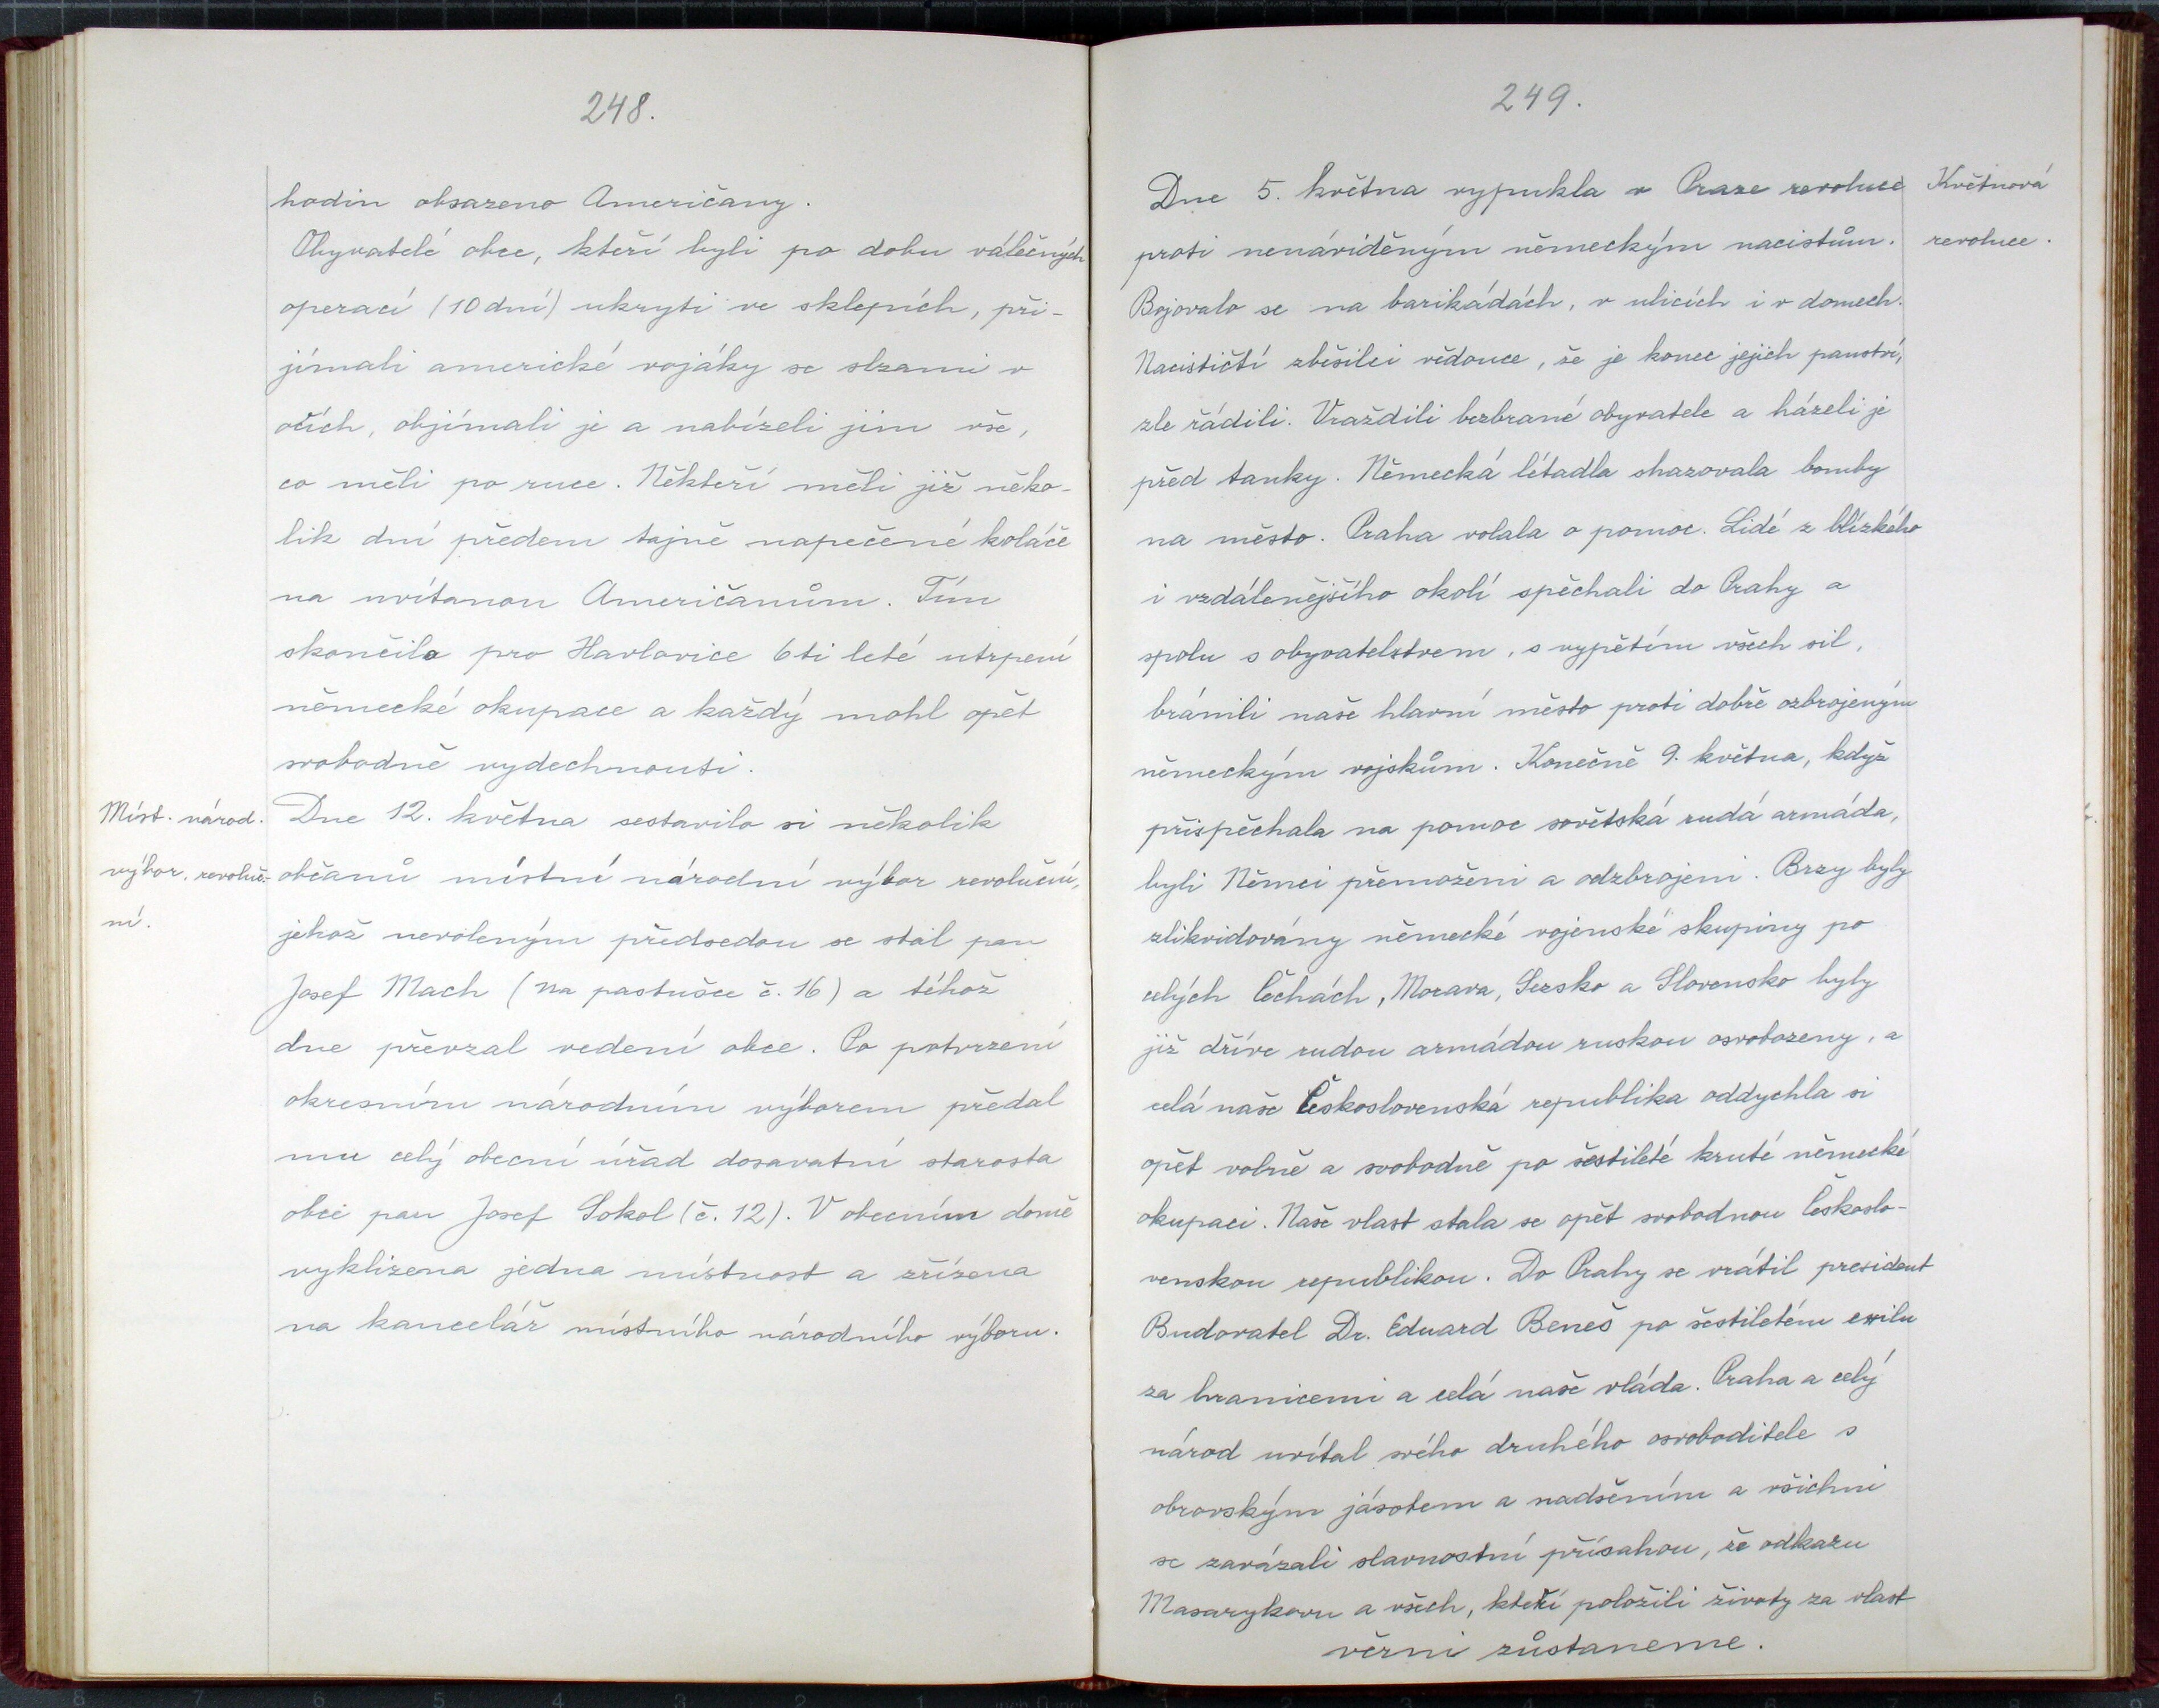 248.
hodin obsazeno Američany.
Obyvatelé obce, kteří byli po dobu válečných
operací (10 dní) ukryti ve sklepích, při-
jímali americké vojáky se slzami v
očích, objímali je a nabízeli jim vše,
co měli po ruce. Někteří měli již něko-
lik dní předem tajně napečené koláče
na uvítanou Američanům. Tím
skončilo pro Havlovice 6ti leté utrpení
německé okupace a každý mohl opět
svobodně vydechnouti.
Míst. národ.
výbor. revoluč-
ní.
Dne 12. května sestavilo si několik
občanů místní národní výbor revoluční,
jehož nevoleným předsedou se stal pan
Josef Mach (na pastušce č. 16) a téhož
dne převzal vedení obce. Po potvrzení
okresním národním výborem předal
mu celý obecní úřad dosavatní starosta
obci pan Josef Sokol (č. 12). V obecním domě
vyklizena jedna místnost a zřízena
na kancelář místního národního výboru.
249.
Květnová
revoluce.
Dne 5. května vypukla v Praze revoluce
proti nenáviděným německým nacistům.
Bojovalo se na barikádách, v ulicích i v domech.
Nacističtí zběsilci vědouce, že je konec jejich panství,
zle řádili. Vraždili bezbrané obyvatele a házeli je
před tanky. Německá létadla shazovala bomby
na město. Praha volala o pomoc. Lidé z blízkého
i vzdálenějšího okolí spěchali do Prahy a
spolu s obyvatelstvem, s vypětím všech sil,
bránili naše hlavní město proti dobře ozbrojeným
německým vojskům. Konečně 9. května, když
přispěchala na pomoc sovětská rudá armáda,
byli Němci přemoženi a odzbrojeni. Brzy byly
zlikvidovány německé vojenské skupiny po
celých Čechách, Morava, Slezsko a Slovensko byly
již dříve rudou armádou ruskou osvobozeny, a
celá naše Československá republika oddychla si
opět volně a svobodně po šestileté kruté německé
okupaci. Naše vlast stala se opět svobodnou Českoslo-
venskou republikou. Do Prahy se vrátil president
Budovatel Dr. Eduard Beneš po šestiletém exilu
za hranicemi a celá naše vláda. Praha a celý
národ uvítal svého druhého osvoboditele s
obrovským jásotem a nadšením a všichni
se zavázali slavnostní přísahou, že odkazu
Masarykovu a všech, kteří položili životy za vlast
věrni zůstaneme.